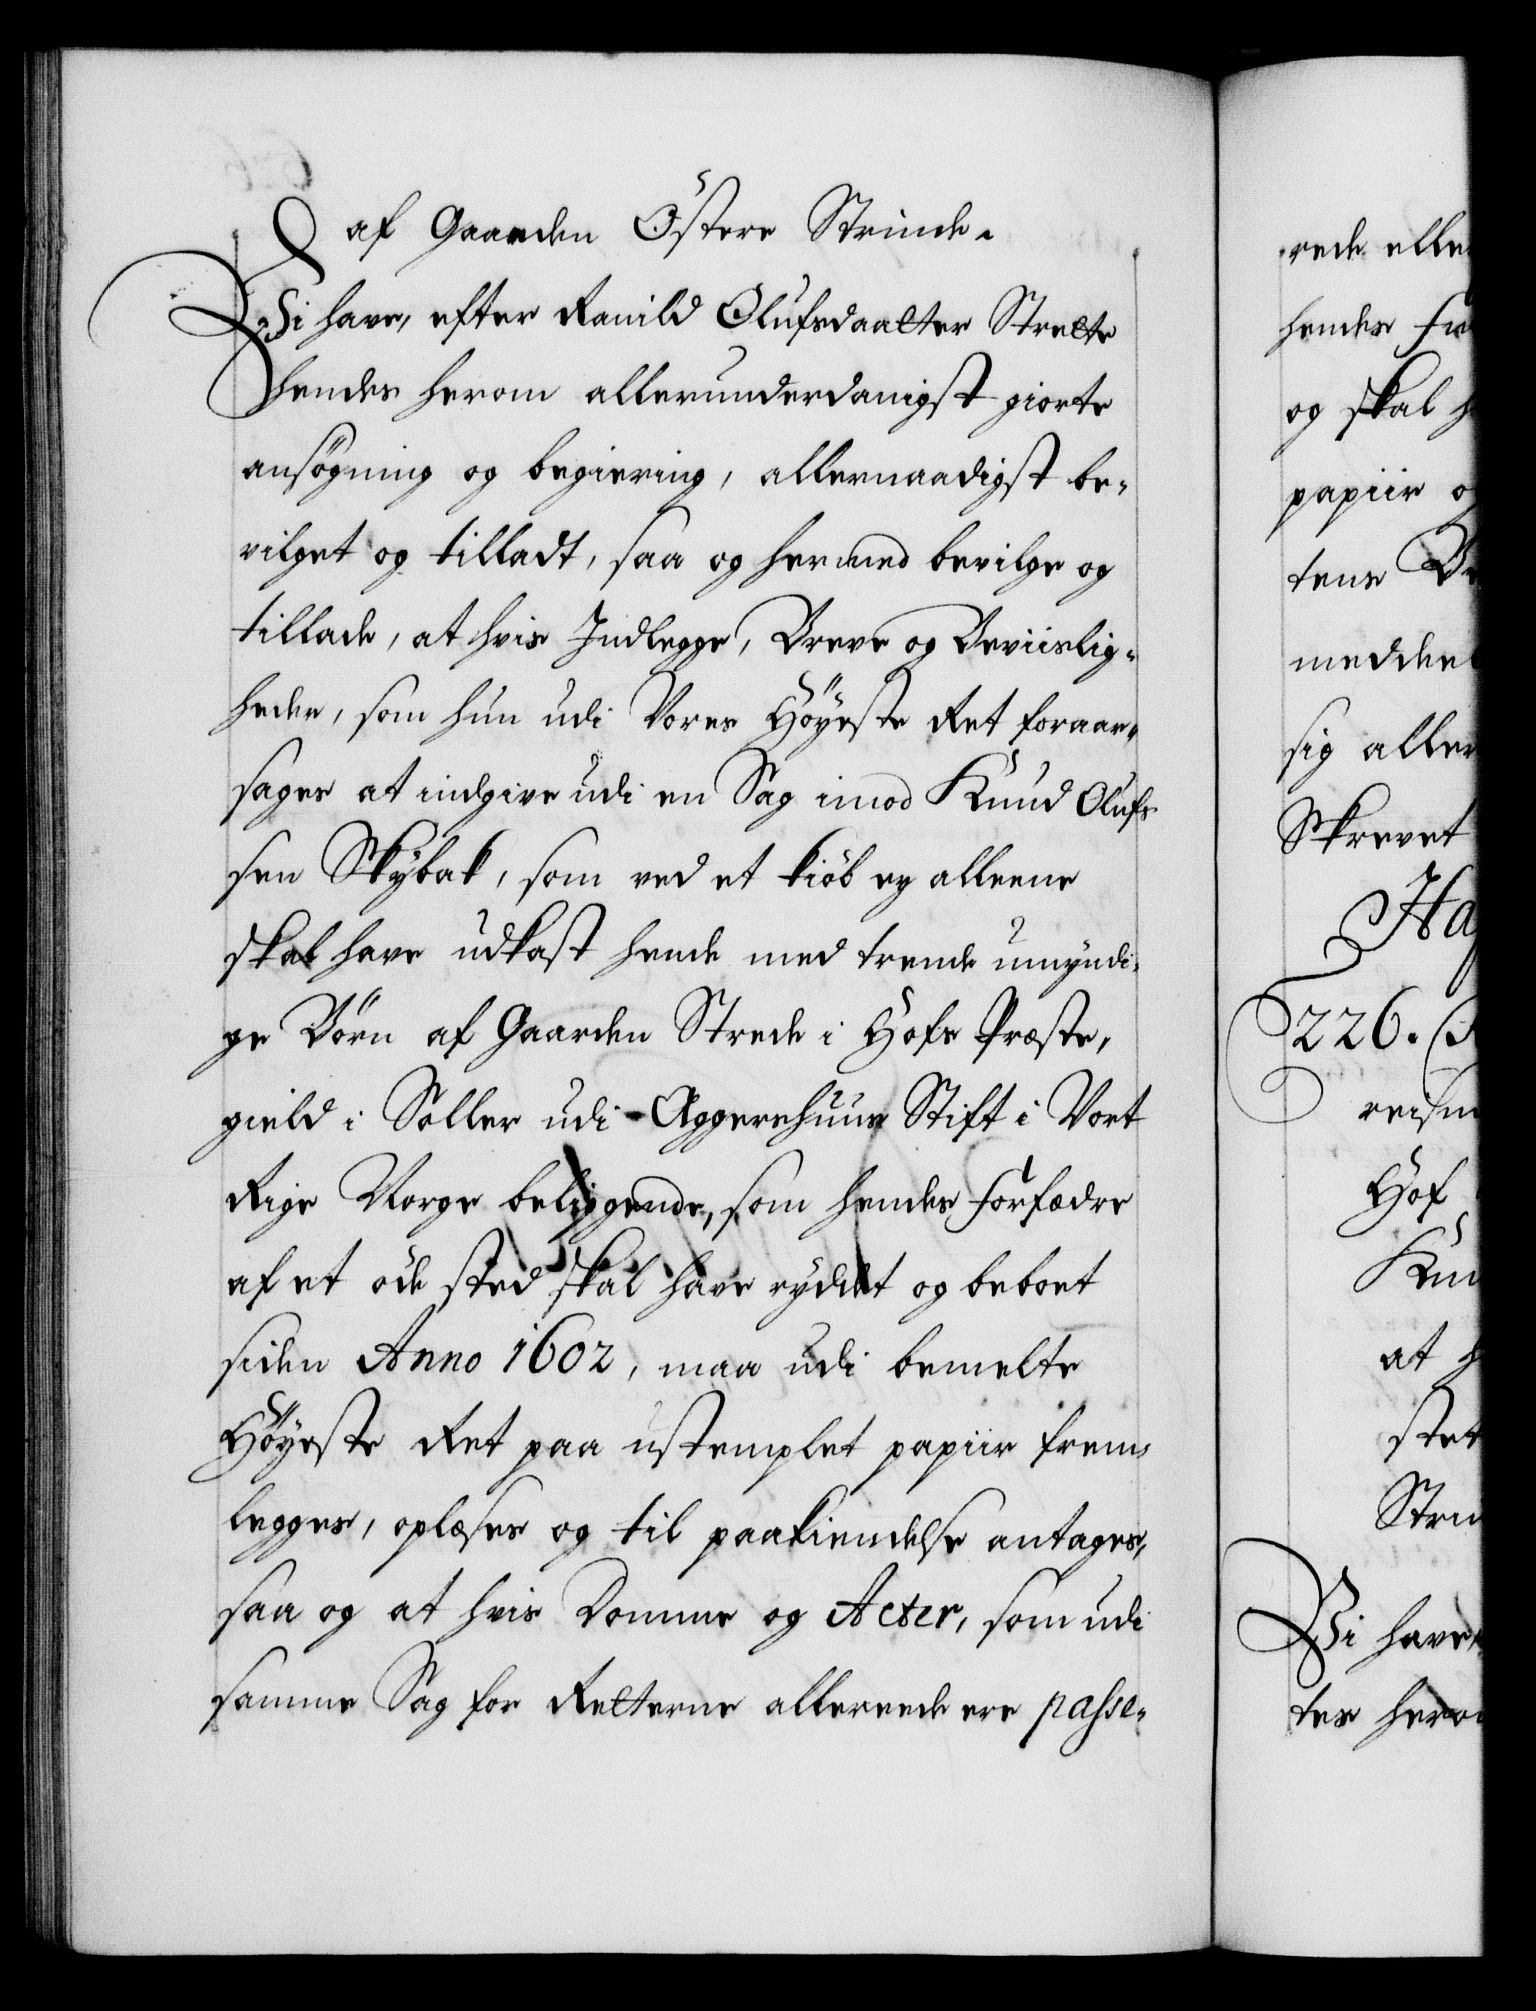 af Gaarden Østere Strinde.
Vi have, efter Ranild Olufsdaatter Strette
hendes herom allerunderdanigst giorte
ansøgning og begiering, allernaadigst be-
vilget og tilladt, saa og hermed bevilge og
tillade, at hvis Indlegge, Breve og Beviislig-
heder, som hun udi Vores Høyeste Ret foraar-
sages at indgive udi en Sag imod Knud Olufs
sen Skybak, som ved et kiøb ey alleene
skal have udkast hende med trende umyndi-
ge Børn af Gaarden Strede i Hofs Præste-
gield i Soller udi Aggershuus Stift i Vort
Rige Norge beliggende, som hendes Forfædre
af et øde sted skal have ryddet og beboet
siden Anno 1602, maa udi bemelte
Høyeste Ret paa ustemplet papiir frem-
legges, oplæses og til paakiendelse antages,
saa og at hvis Domme og Acter, som udi
samme Sag for Retterne allereede ere passe-
rede elle
hendes
og skal
papiir
tens
meddeel
sig aller
Skrevet
226.
Hof
at
Vi have
tes